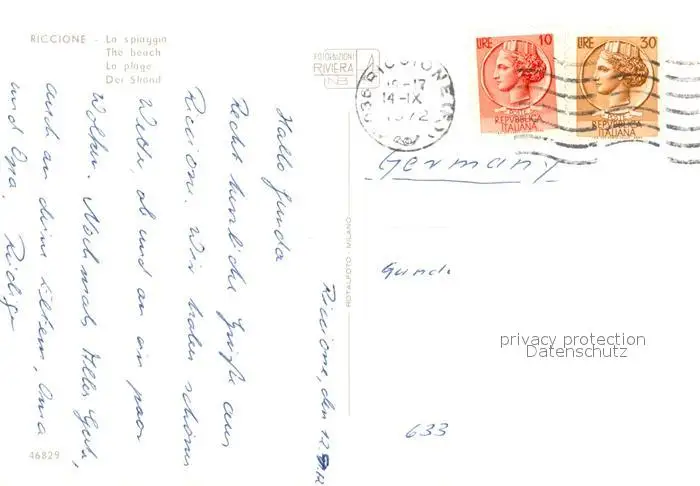 RICCIONE - La spiaggia
The beach
La plage
Der Strand
FOTOEDIZIONI
RIVIERA
RICCIONE
16-17
14-IX
1972
LIRE 10
POSTE
REPVBBLICA
ITALIANA
LIRE 30
POSTE
REPVBBLICA
ITALIANA
Germany
Riccione, den 12.9.72
Hallo Gunda
Recht herzliche Grüße aus
Riccione. Wir haben schönes
Wetter, ab und an ein paar
Wolken. Nochmals Alles Gute,
auch an deine Eltern, Oma
und Opa. Rüdiger
ROTALFOTO - MILANO
Gunda
privacy protection
Datenschutz
633
46829